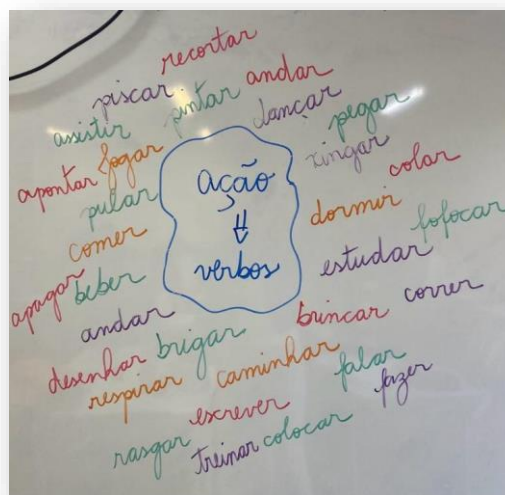 recortar
piscar
pintar
andar
assistir
dançar
pegar
apontar
jogar
xingar
colar
pular
ação
dormir
fofocar
comer
verbos
estudar
apagar
beber
andar
brincar
correr
desenhar
brigar
respirar
caminhar
falar
fazer
escrever
rasgar
treinar
colocar